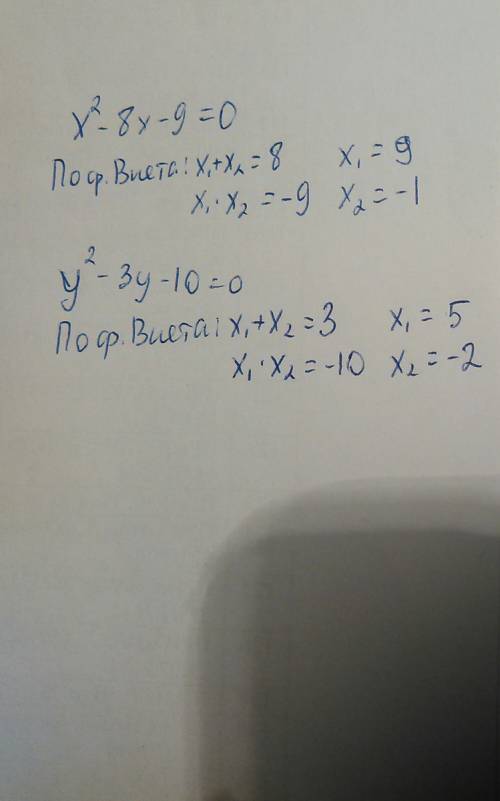 x² - 8x - 9 = 0
По ф. Виета: x₁ + x₂ = 8 x₁ = 9
x₁ · x₂ = -9 x₂ = -1
y² - 3y - 10 = 0
По ф. Виета: x₁ + x₂ = 3 x₁ = 5
x₁ · x₂ = -10 x₂ = -2